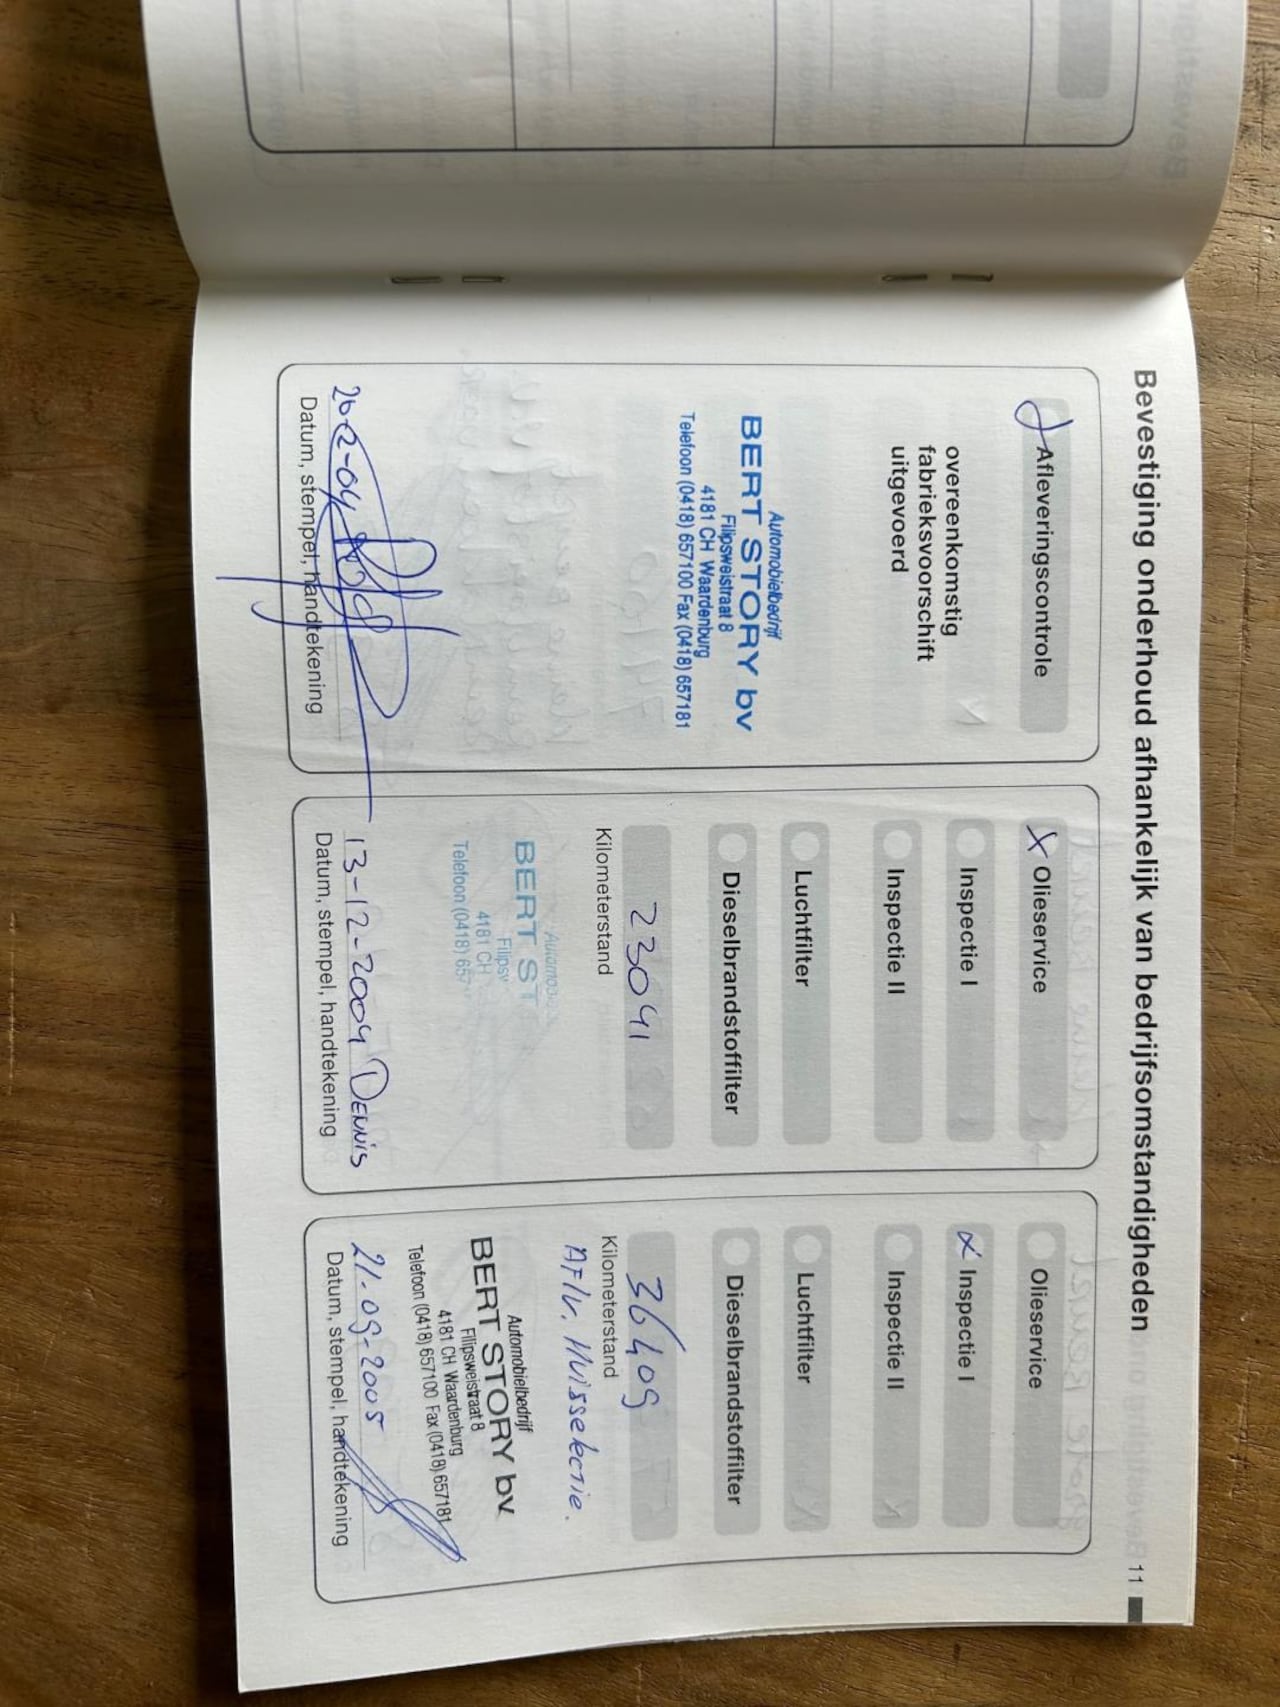 Bevestiging onderhoud afhankelijk van bedrijfsomstandigheden
11
Afleveringscontrole
overeenkomstig
fabrieksvoorschift
uitgevoerd
Automobielbedrijf
BERT STORY bv
Filipsweistraat 8
4181 CH Waardenburg
Telefoon (0418) 657100 Fax (0418) 657181
26-2-04
Datum, stempel, handtekening
X Olieservice
Inspectie I
Inspectie II
Luchtfilter
Dieselbrandstoffilter
23041
Kilometerstand
BERT ST
Filipsw
4181 CH
Telefoon (0418) 657
13-12-2004 DENNIS
Datum, stempel, handtekening
Olieservice
X Inspectie I
Inspectie II
Luchtfilter
Dieselbrandstoffilter
36409
Kilometerstand
AFlv. Huisselectie.
Automobielbedrijf
BERT STORY bv
Filipsweistraat 8
4181 CH Waardenburg
Telefoon (0418) 657100 Fax (0418) 657181
21-09-2005
Datum, stempel, handtekening